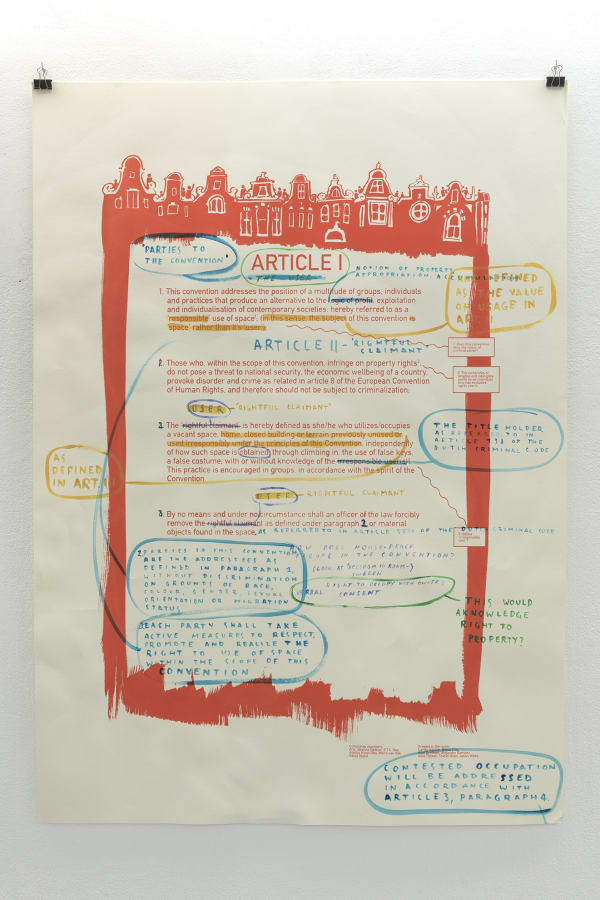 "PARTIES TO
THE CONVENTION"
ARTICLE I
- THE USER
NOTION OF PROPERTY
APPROPRIATION, ACCUMULATION
AS DEFINED
AS THE VALUE
OR USAGE IN
ART.
1. This convention addresses the position of a multitude of groups, individuals
and practices that produce an alternative to the logic of profit, exploitation
and individualisation of contemporary societies; hereby referred to as a
'responsible' use of space; in this sense, the subject of this convention is
'space' rather than it's 'user'.
ARTICLE II - 'RIGHTFUL
CLAIMANT'
1. Those who, within the scope of this convention, infringe on property rights
do not pose a threat to national security, the economic wellbeing of a country,
provoke disorder and crime as related in article 8 of the European Convention
of Human Rights, and therefore should not be subject to criminalization;
USER - 'RIGHTFUL CLAIMANT'
2. The 'rightful claimant' is hereby defined as she/he who utilizes/occupies
a vacant space, home, closed building or terrain previously unused or
used irresponsibly under the principles of this Convention, independently
of how such space is obtained: through climbing in, the use of false keys,
a false costume, with or without knowledge of the irresponsible user(s)
This practice is encouraged in groups, in accordance with the spirit of the
Convention.
THE TITLE HOLDER
AS REFERRED TO IN
ARTICLE 138 OF THE
DUTCH CRIMINAL CODE
AS
DEFINED
IN ART.
USER - RIGHTFUL CLAIMANT
3. By no means and under no circumstance shall an officer of the law forcibly
remove the rightful claimant as defined under paragraph 2 or material
objects found in the space,
AS REFERRED TO IN ARTICLE OF THE DUTCH CRIMINAL CODE
2. PARTIES TO THIS CONVENTION,
ARE THE ADDRESSEES AS
DEFINED IN PARAGRAPH 1,
WITHOUT DISCRIMINATION
ON GROUNDS OF RACE,
COLOUR, GENDER, SEXUAL
ORIENTATION OR MIGRATION
STATUS
HOW DOES HOUSE-PEACE
COME IN THE CONVENTION?
(LOOK AT
SWEDEN
RIGHT TO OCCUPY WITH OWNERS
VERBAL CONSENT
THIS WOULD
AKNOWLEDGE
RIGHT TO
PROPERTY?
3. EACH PARTY SHALL TAKE
ACTIVE MEASURES TO RESPECT,
PROMOTE AND REALIZE THE
RIGHT TO USE OF SPACE
WITHIN THE SCOPE OF THIS
CONVENTION
CONTESTED OCCUPATION
WILL BE ADDRESSED
IN ACCORDANCE WITH
ARTICLE 3, PARAGRAPH 4.